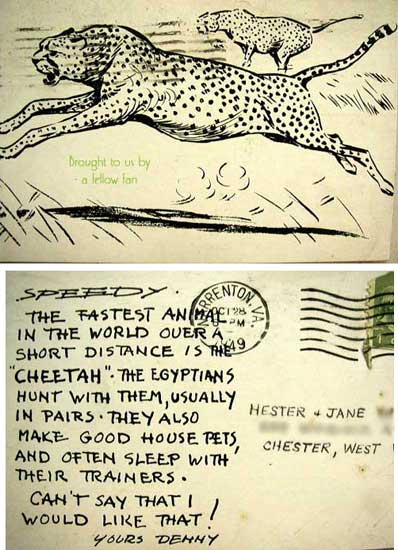 Brought to us by
- a fellow fan
SPEEDY.
THE FASTEST ANIMAL
IN THE WORLD OVER A
SHORT DISTANCE IS THE
"CHEETAH". THE EGYPTIANS
HUNT WITH THEM, USUALLY
IN PAIRS. THEY ALSO
MAKE GOOD HOUSE PETS,
AND OFTEN SLEEP WITH
THEIR TRAINERS.
CAN'T SAY THAT I
WOULD LIKE THAT!
YOURS DENNY
WARRENTON, VA.
OCT 28
PM
1949
HESTER + JANE
CHESTER, WEST